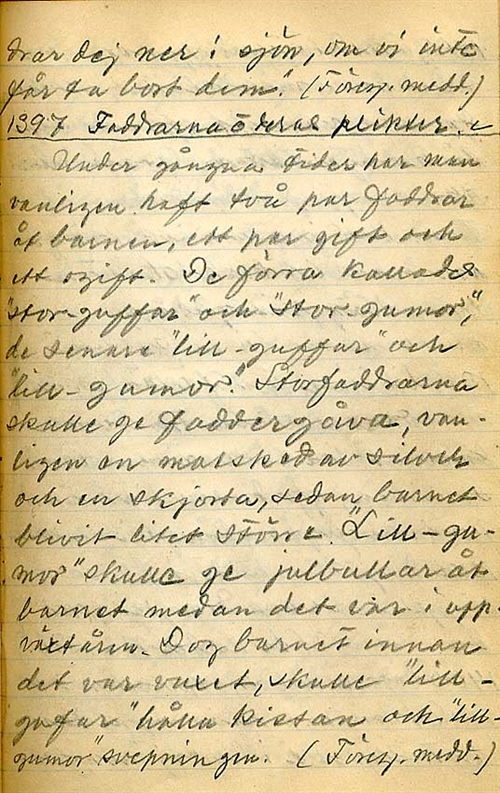 drar dej ner i sjön, om vi inte
får ta bort dem". (Föreg. medd.)
1397 Faddrarna o deras plikter.
Under gångna tider har man
vanligen haft två par faddrar
åt barnen, ett par gift och
ett ogift. De förra kallades
"stor-guffar" och "stor-gumor",
de senare "lill-guffar" och
"lill-gumor". Storfaddrarna
skulle ge faddergåva, van-
ligen en matsked av silver
och en skjorta, sedan barnet
blivit litet större. "Lill-gu-
mor" skulle ge julbullar åt
barnet medan det var i upp-
växtåren. Dog barnet innan
det var vuxet, skulle "lill-
gufar" hålla kistan och "lill-
gumor" svepningen. (Föreg. medd.)